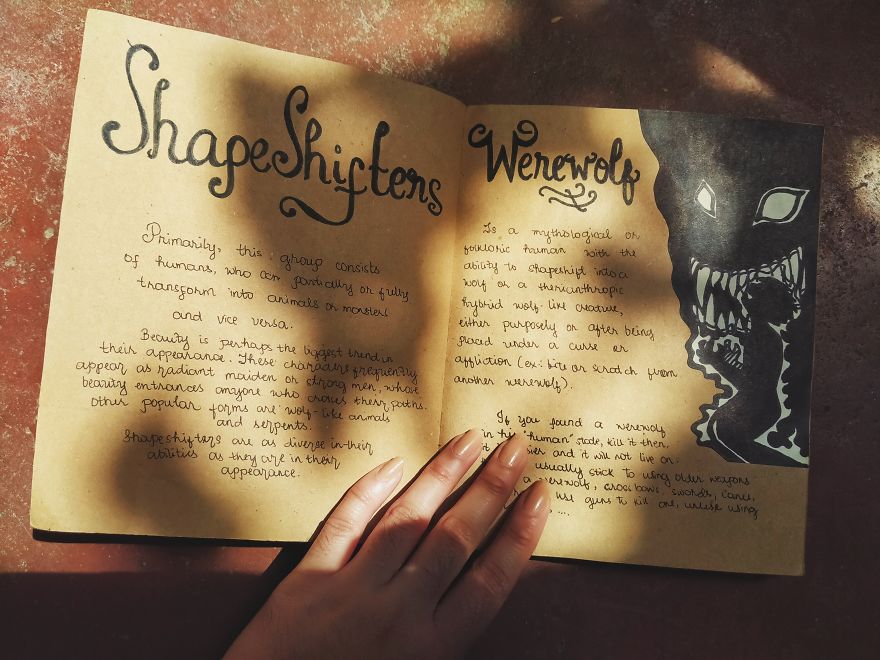 ShapeShifters
Primarily, this group consists
of humans, who can partially or fully
transform into animals or monsters
and vice versa.
Beauty is perhaps the biggest trend in
their appearance. These characters frequently
appear as radiant maiden or strong men, whose
beauty entrances anyone who crosses their paths.
Other popular forms are wolf-like animals
and serpents.
Shapeshifters are as diverse in their
abilities as they are in their
appearance.
Werewolf
Is a mythological or
folkloric human with the
ability to shapeshift into a
wolf or a therianthropic
hybrid wolf-like creature,
either purposely or after being
placed under a curse or
affliction (ex: bite or scratch from
another werewolf).
If you found a werewolf
in his "human" state, kill it then,
and it will not live on.
usually stick to using older weapons
a werewolf, crossbows, swords, canes,
use guns to kill one, unless using
....